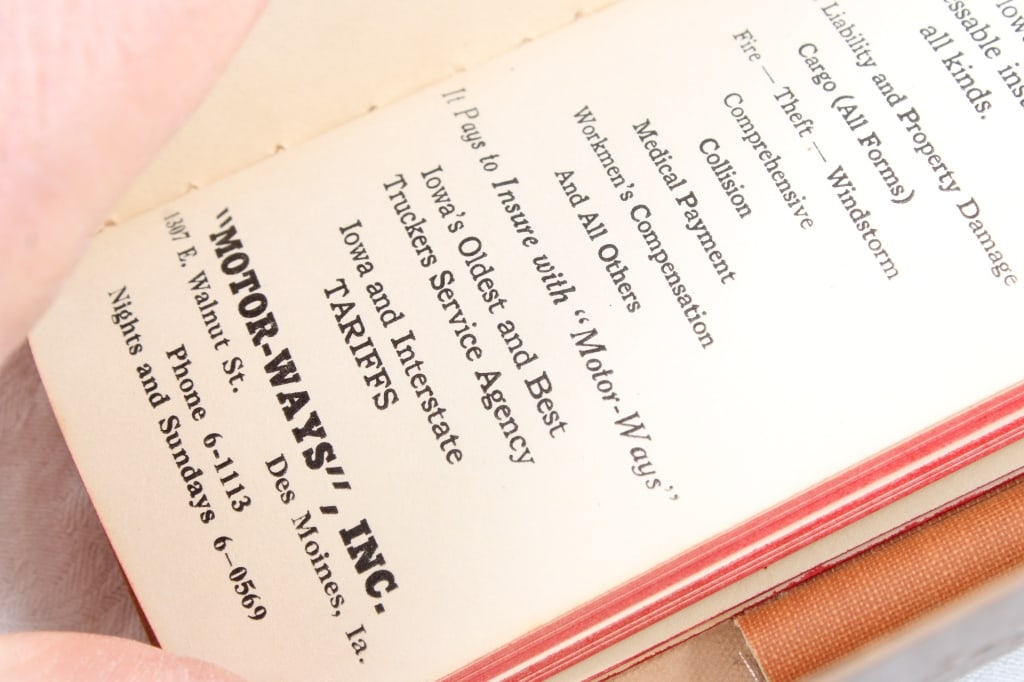 all kinds.
Liability and Property Damage
Cargo (All Forms)
Fire — Theft — Windstorm
Comprehensive
Collision
Medical Payment
Workmen's Compensation
And All Others
It Pays to Insure with "Motor-Ways"
Iowa's Oldest and Best
Truckers Service Agency
Iowa and Interstate
TARIFFS
"MOTOR-WAYS", INC.
1307 E. Walnut St. Des Moines, Ia.
Phone 6-1113
Nights and Sundays 6-0569